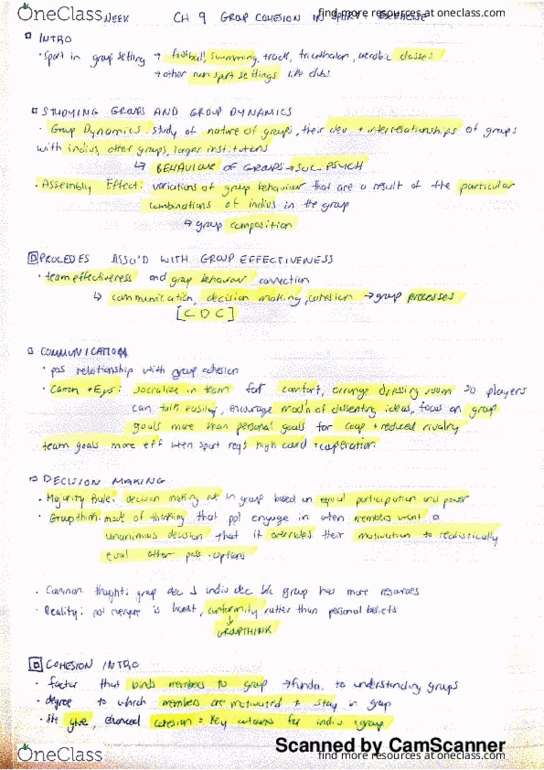 OneClass
find more resources at oneclass.com
WEEK CH 9 GROUP COHESION IN SPORT + EXERCISE
INTRO
· Sport in group setting → football, swimming, track, triathalon, aerobic classes
→ other non sport settings like clubs
STUDYING GROUPS AND GROUP DYNAMICS
· Group Dynamics: study of nature of groups, their dev + interrelationships of groups
with indivs, other groups, larger institutions
↳ BEHAVIOUR OF GROUPS → SOC PSYCH
· Assembly Effect: variations of group behaviour that are a result of the particular
combinations of indivs in the group
↳ group composition
PROCESSES ASSO'D WITH GROUP EFFECTIVENESS
· team effectiveness and group behaviour connection
↳ communication, decision making, cohesion → group processes
[CDC]
COMMUNICATION
· pos relationship with group cohesion
· Carron + Eys: socialize in team for comfort, arrange dressing room so players
can talk easily, encourage of dissenting ideas, focus on group
goals more than personal goals for coop + reduced rivalry
team goals more eff when sport req's high coord + cooperation.
DECISION MAKING
· Majority Rule: decision making in group based on equal participation and power
· Groupthink: mode of thinking that ppl engage in when members want a
unanimous decision that it overrides their motivation to realistically
other poss. options
· Common thought: group dec indiv dec b/c group has more resources
· Reality: not everyone is honest, conformity rather than personal beliefs
↓
GROUPTHINK
COHESION INTRO
· factor that binds members to group → funda. to understanding groups
· degree to which members are motivated to stay in group
· like glue, enhanced cohesion = key outcome for indiv + group
Scanned by CamScanner
OneClass
find more resources at oneclass.com